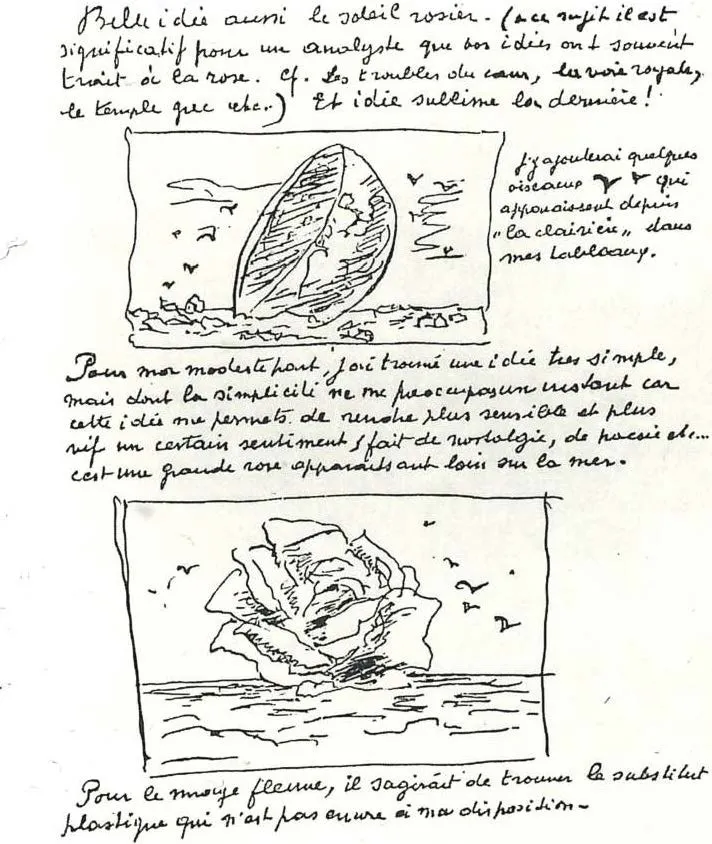 Belle idée aussi le soleil rosier. (a ce sujet il est
significatif pour un analyste que vos idées ont souvent
trait à la rose. Cf. Les troubles du cœur, la voie royale,
le temple grec etc..) Et idée sublime la dernière!
J'y ajouterai quelques
oiseaux qui
apparaissent depuis
"la clairière" dans
mes tableaux.
Pour ma modeste part, j'ai trouvé une idée très simple,
mais dont la simplicité ne me preoccupa un instant car
cette idée me permets de rendre plus sensible et plus
vif un certain sentiment, fait de nostalgie, de poesie etc...
c'est une grande rose apparaissant loin sur la mer.
Pour le fleuve, il sagirait de trouver le substitut
plastique qui n'est pas encore à ma disposition-